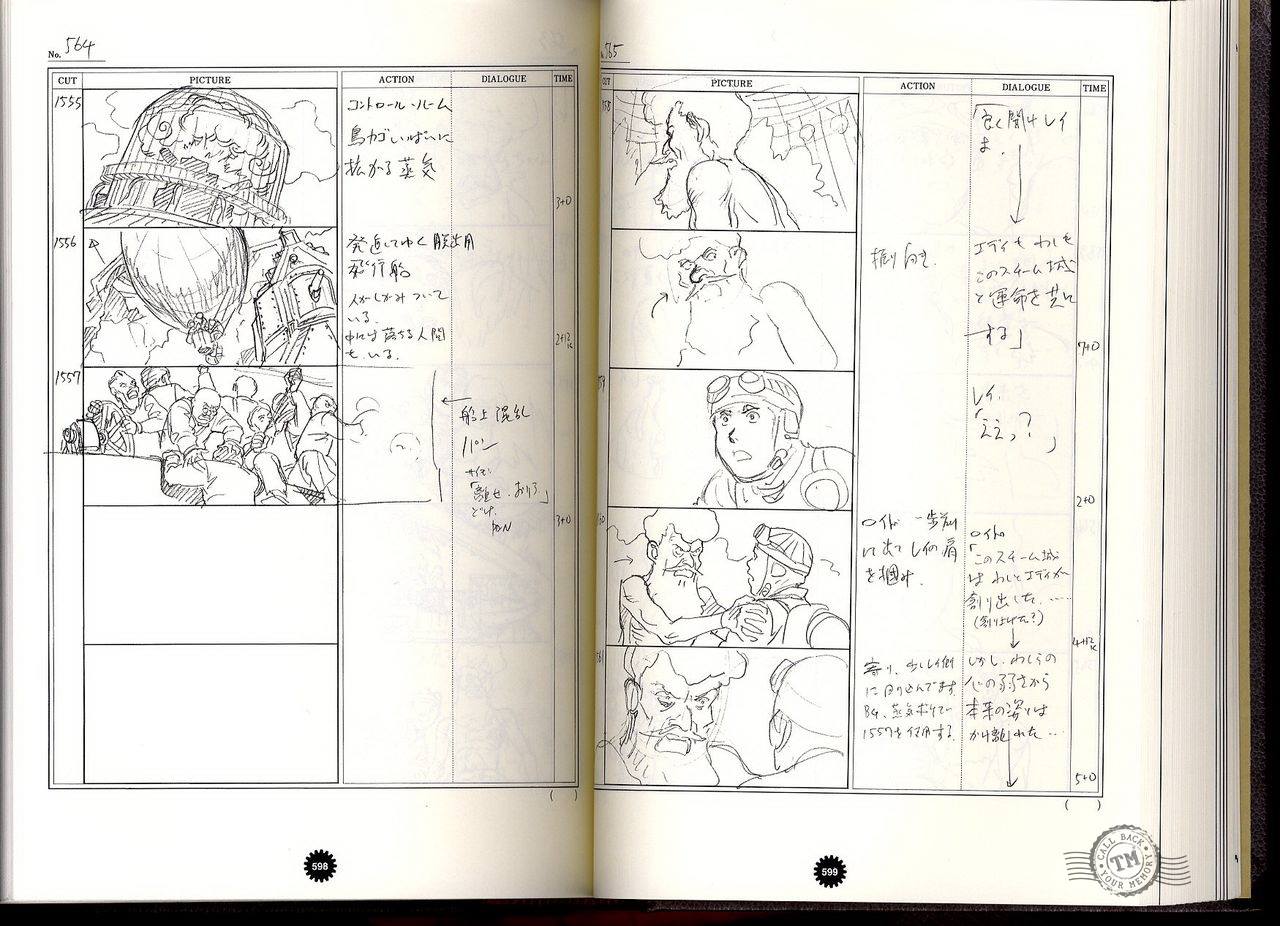 No. 564
CUT PICTURE ACTION DIALOGUE TIME
1555
コントロール・ルーム
鳥カゴいっぱいに
拡がる蒸気
3+0
1556
発進してゆく脱出用
飛行船
人がしがみついて
いる。
中には落ちる人間
も、いる。
2+12
1557
船上混乱
「離せ、おりろ」
3+0
598
565
CUT PICTURE ACTION DIALOGUE TIME
「良く聞けレイ
よ。
振り向き。
エディも わしも
このスチーム城
と運命を共に
する」
7+0
レイ
「ええっ?」
2+0
ロイド 一歩前
に出て レイの肩
を掴み。
ロイド
「このスチーム城
は わしとエディが
創り出した……
(創り上げた?)
4+12
寄り、少しレイ側
に回り込んでます
1557を使用する。
しかし、わしらの
心の弱さから
本来の姿とは
かけ離れた…
5+0
599
CALL BACK
TM
YOUR MEMORY